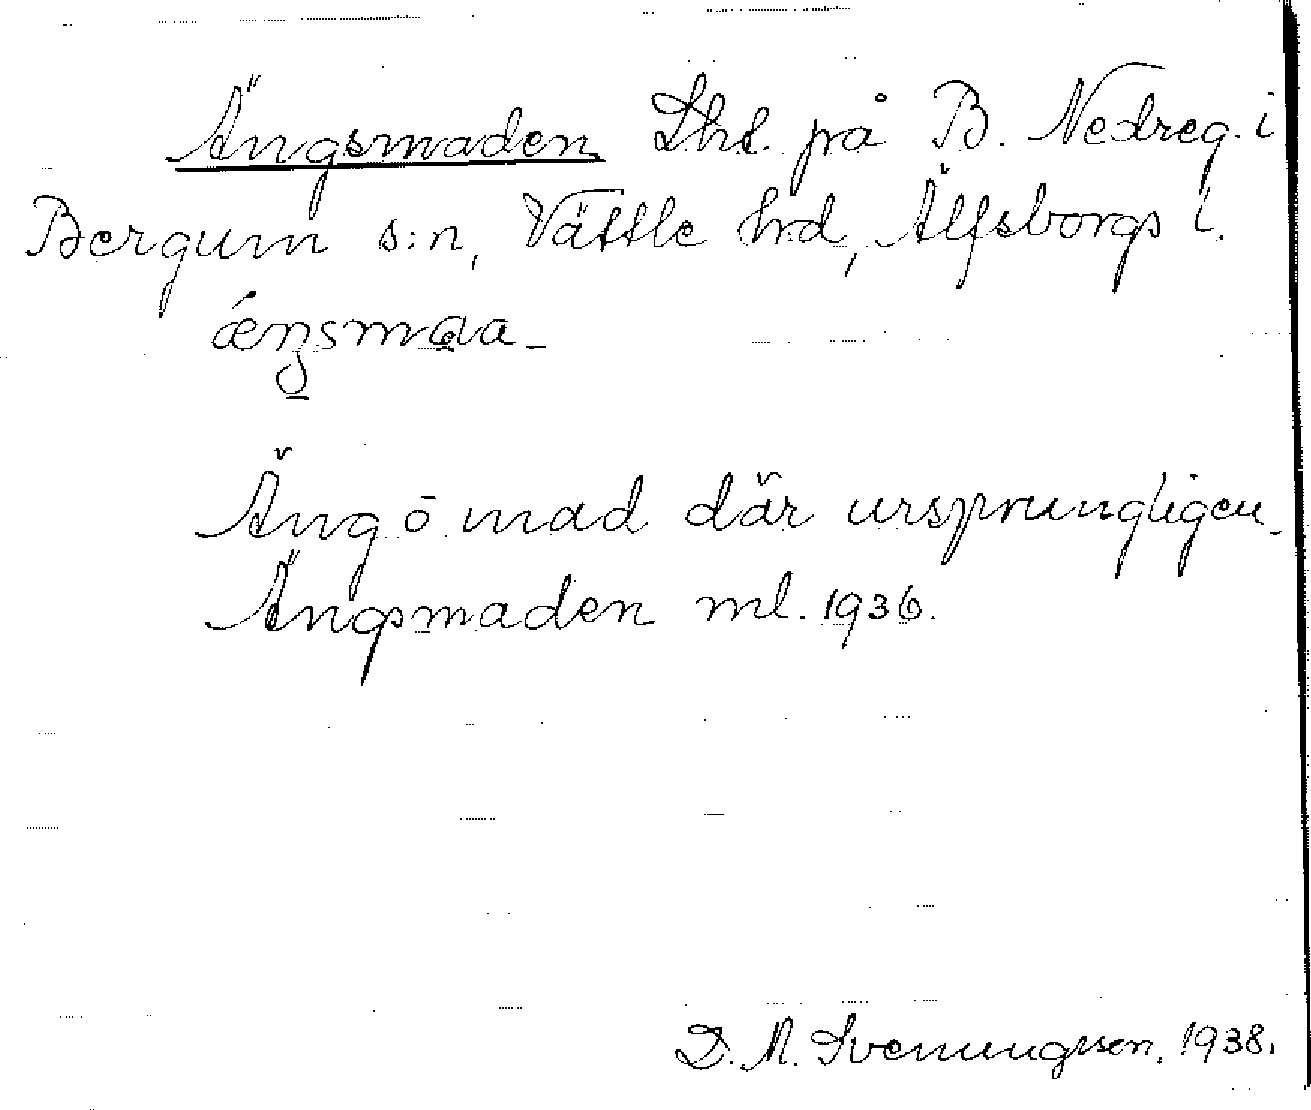 Ängsmaden Lht. på B. Nedreg. i
Bergum s:n, Vättle hrd, Älfsborgs l.
ǽŋsmaa_
Äng o mad där ursprungligen_
Ängsmaden ml. 1936.
D. A. Svenungsson. 1938.